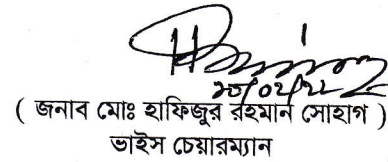 ২০/০২/২২
( জনাব মোঃ হাফিজুর রহমান সোহাগ )
ভাইস চেয়ারম্যান